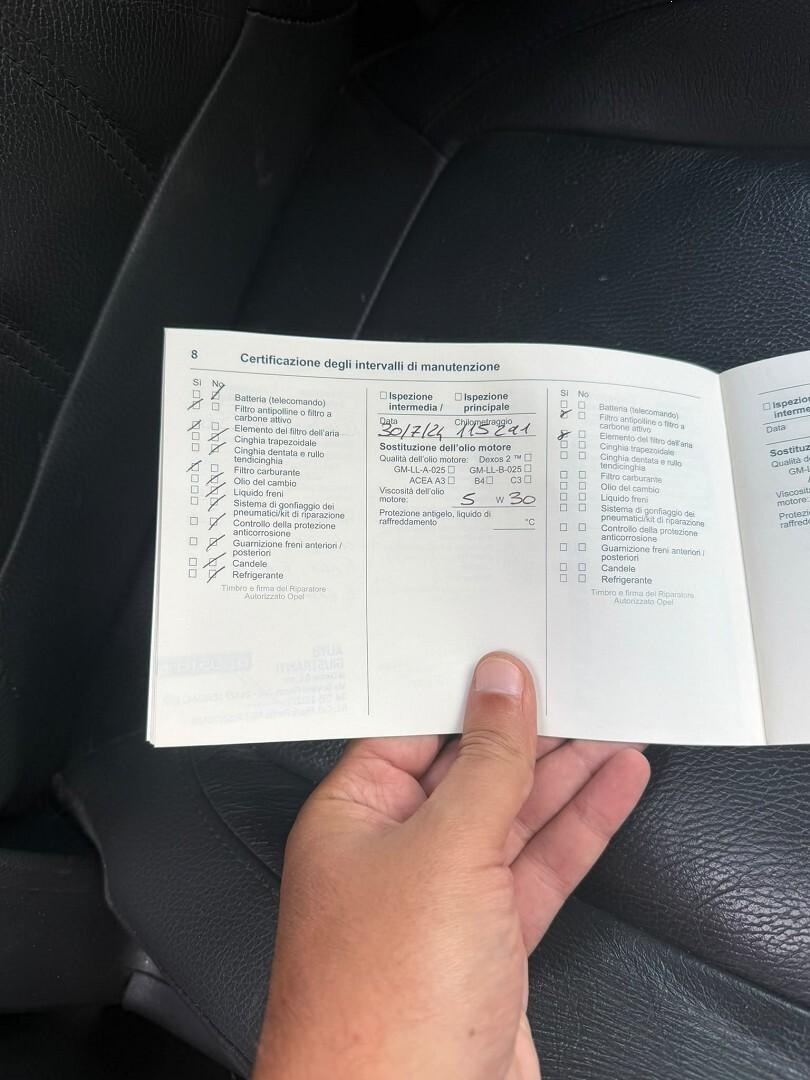 8 Certificazione degli intervalli di manutenzione
Sì No
Batteria (telecomando)
Filtro antipolline o filtro a
carbone attivo
Elemento del filtro dell'aria
Cinghia trapezoidale
Cinghia dentata e rullo
tendicinghia
Filtro carburante
Olio del cambio
Liquido freni
Sistema di gonfiaggio dei
pneumatici/kit di riparazione
Controllo della protezione
anticorrosione
Guarnizione freni anteriori /
posteriori
Candele
Refrigerante
Timbro e firma del Riparatore
Autorizzato Opel
Ispezione Ispezione
intermedia / principale
Data Chilometraggio
30/7/24 115291
Sostituzione dell'olio motore
Qualità dell'olio motore: Dexos 2 ™
GM-LL-A-025 GM-LL-B-025
ACEA A3 B4 C3
Viscosità dell'olio
motore: 5 W 30
Protezione antigelo, liquido di
raffreddamento °C
Sì No
Batteria (telecomando)
Filtro antipolline o filtro a
carbone attivo
Elemento del filtro dell'aria
Cinghia trapezoidale
Cinghia dentata e rullo
tendicinghia
Filtro carburante
Olio del cambio
Liquido freni
Sistema di gonfiaggio dei
pneumatici/kit di riparazione
Controllo della protezione
anticorrosione
Guarnizione freni anteriori /
posteriori
Candele
Refrigerante
Timbro e firma del Riparatore
Autorizzato Opel
Data